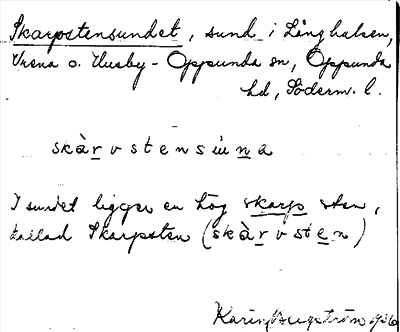 Skarpstensundet, sund i Långhalsen,
Vrena o. Husby-Oppunda sn, Oppunda
hd, Söderm. l.
skàrvstensùna
I sundet ligger en hög skarp sten,
kallad Skarpsten (skàrvsten)
Karin Bergström 1936